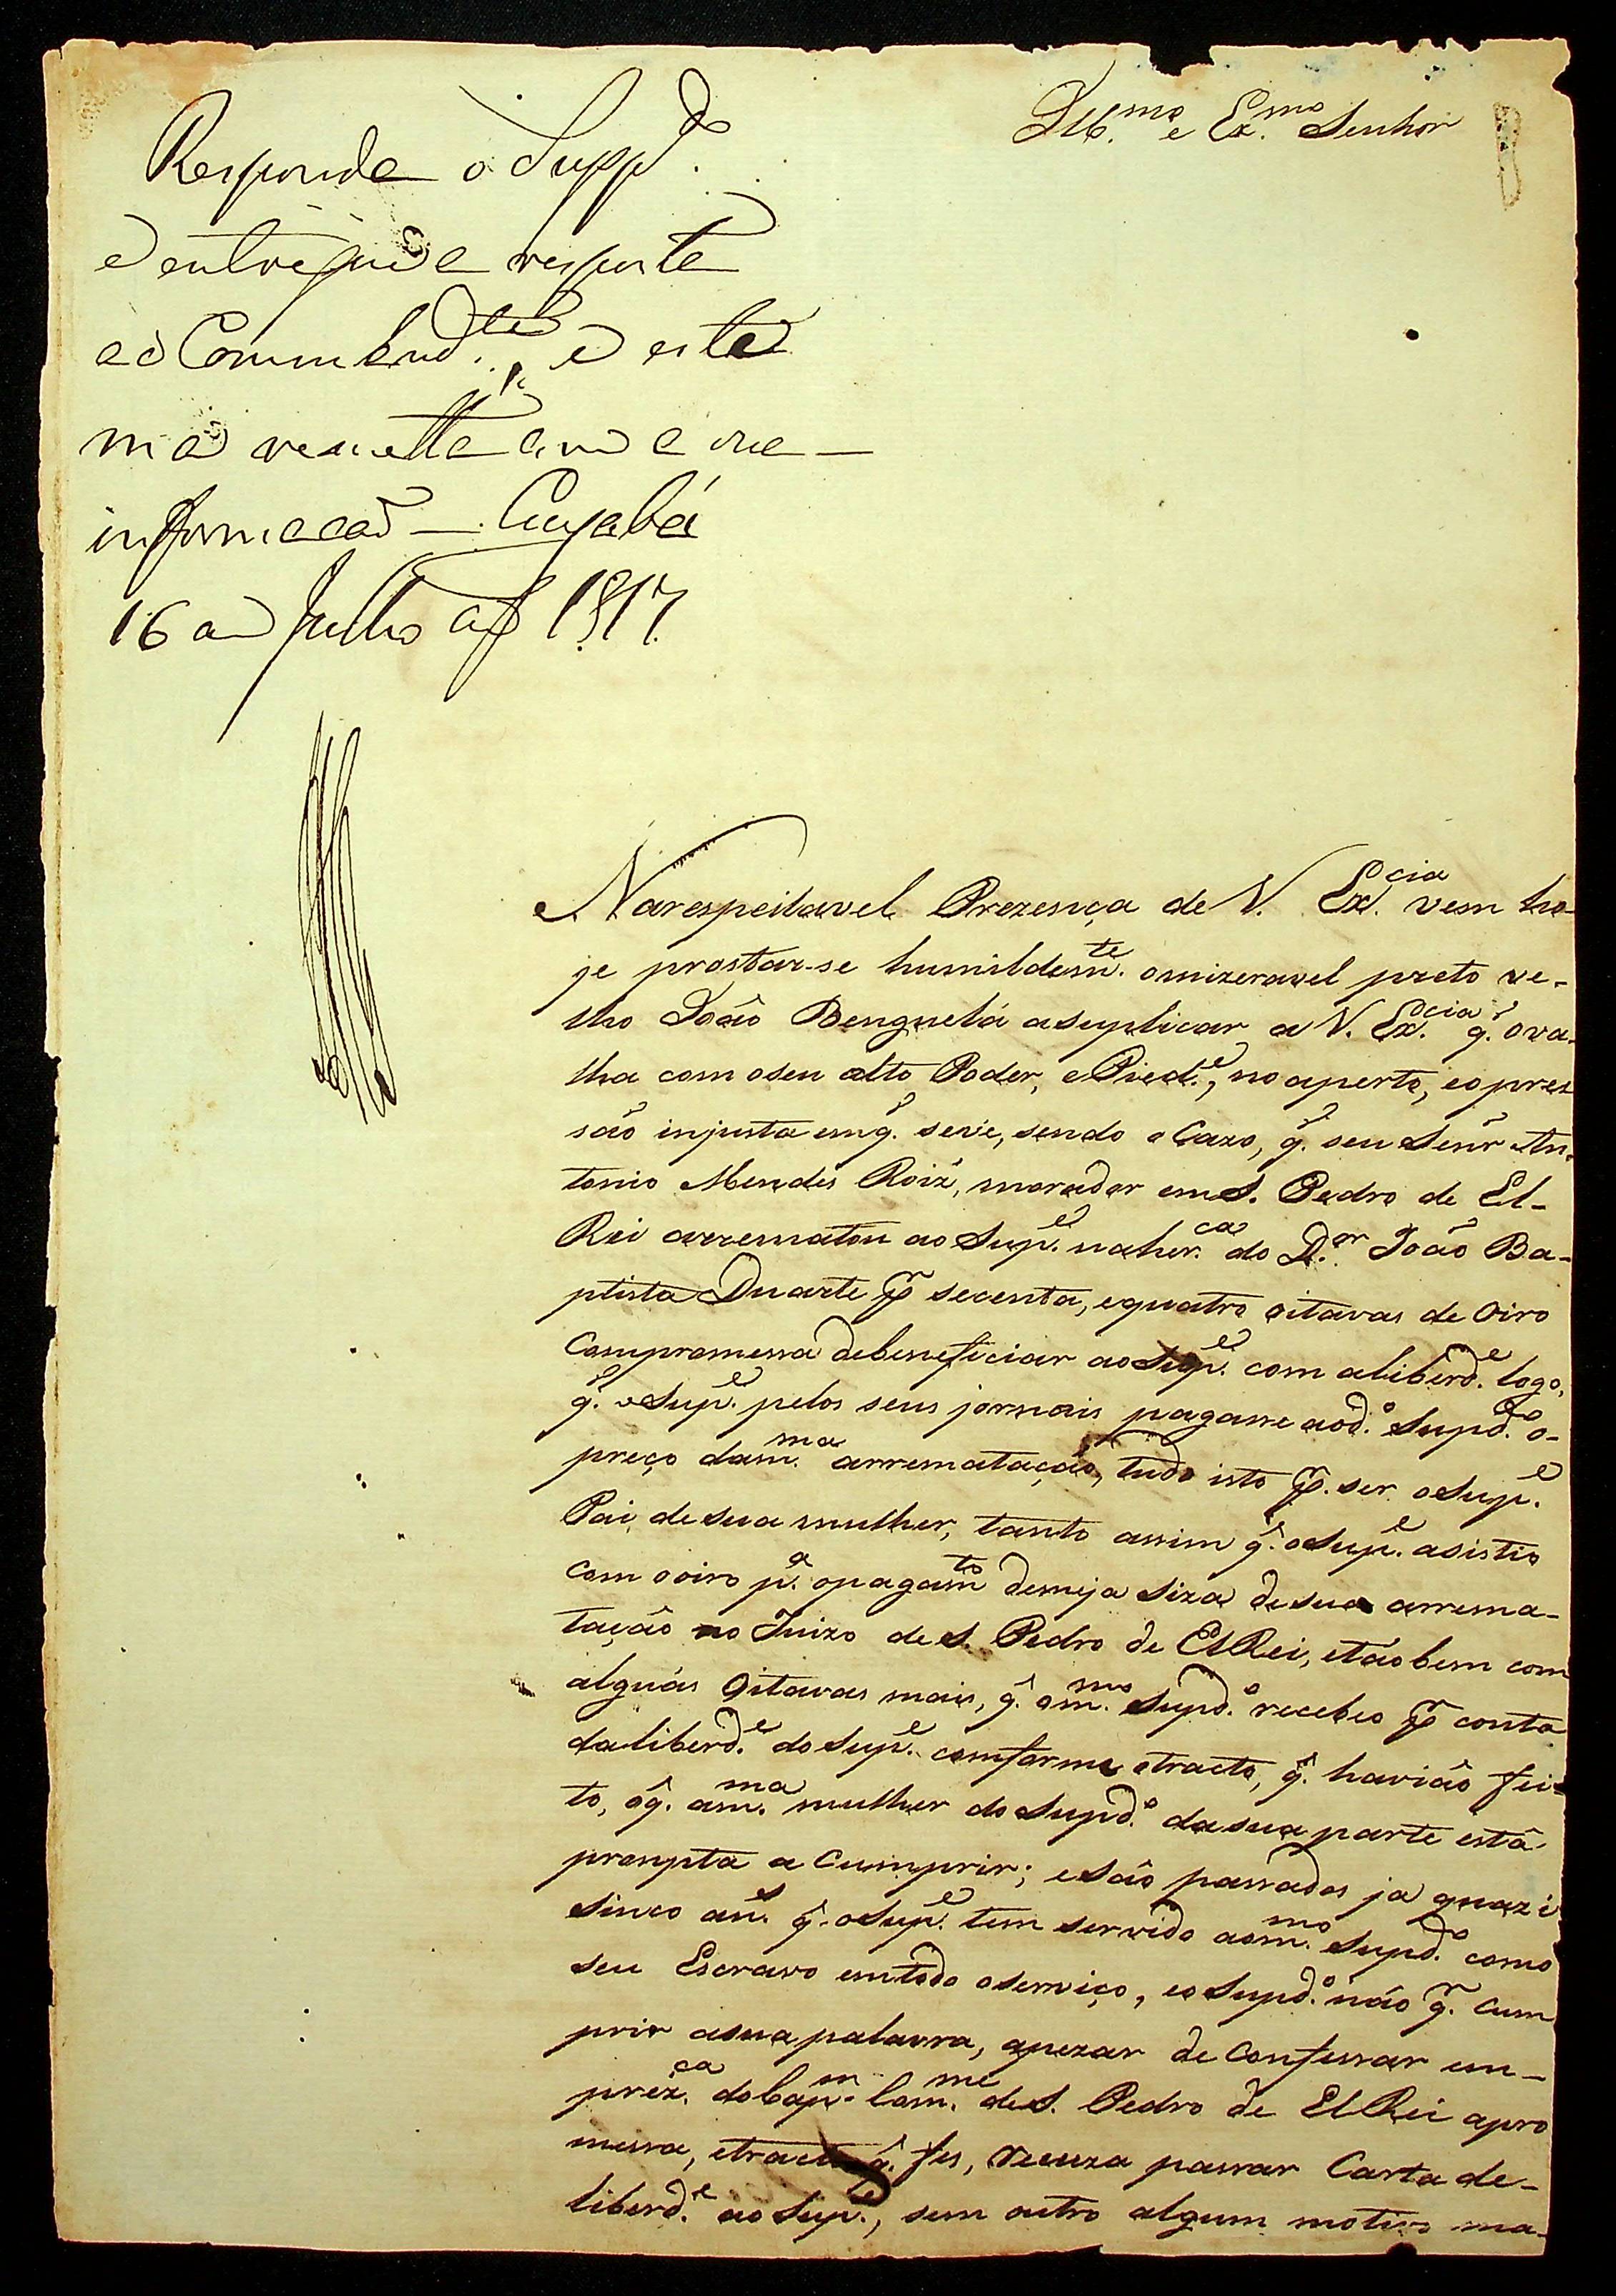 Ill.mo e Ex.mo Senhor
Responda o Supp.do
e entregue a resposta
ao Commend.te, e este
ma remetta com a sua
informação — Cuyabá
16 de Julho de 1817
Na respeitavel Prezença de V. Ex.cia vem ho-
je prostar-se humildem.te omizeravel preto ve-
lho João Benguelá asuplicar a V. Ex.cia q̃. ova-
lha com oseu alto Poder, ePied.e, no aperto, eopres
são injusta emq̃. seve, sendo o Cazo, q̃. seu Senr̃ An-
tonio Mendes Roiz̃, morador em S. Pedro de El-
Rei arrematou ao Sup.e naher.ca do D.or João Ba-
ptista Duarte p̃ secenta, equatro oitavas de Oiro
Compromessa debeneficiar ao Sup.e com aliberd.e logo,
q̃. oSup.e pelos seus jornais pagasse aod.o Supd.o o-
preço dam.ma arrematação, tudo isto p̃. ser oSup.e
Pai de sua mulher, tanto assim q̃. oSup.e asistio
com ooiro p.a opagam.to demeja Siza de sua arrema-
tação no Juizo de S. Pedro de ElRei, etãobem com
alguãs Oitavas mais, q̃. om.mo Supd.o recebeo p̃ conta
daliberd.e do Sup.e comforme otracto, q̃. haviâo fei-
to, oq̃. am.ma mulher do Supd.o dasua parte está
prompta a Cumprir; eSâo passados ja quazi
Sinco an.s q̃. oSup.e tem servido aom.mo Supd.o como
seu Escravo emtodo oserviço, eoSupd.o não q.r Cum
prir asua palavra, apezar de Confessar em-
prez.ca do Cap.m Com.me de S. Pedro de ElRei apro
messa, etracto q̃. fes, recuza passar Carta de-
liberd.e ao Sup.e, sem outro algum motivo ma-